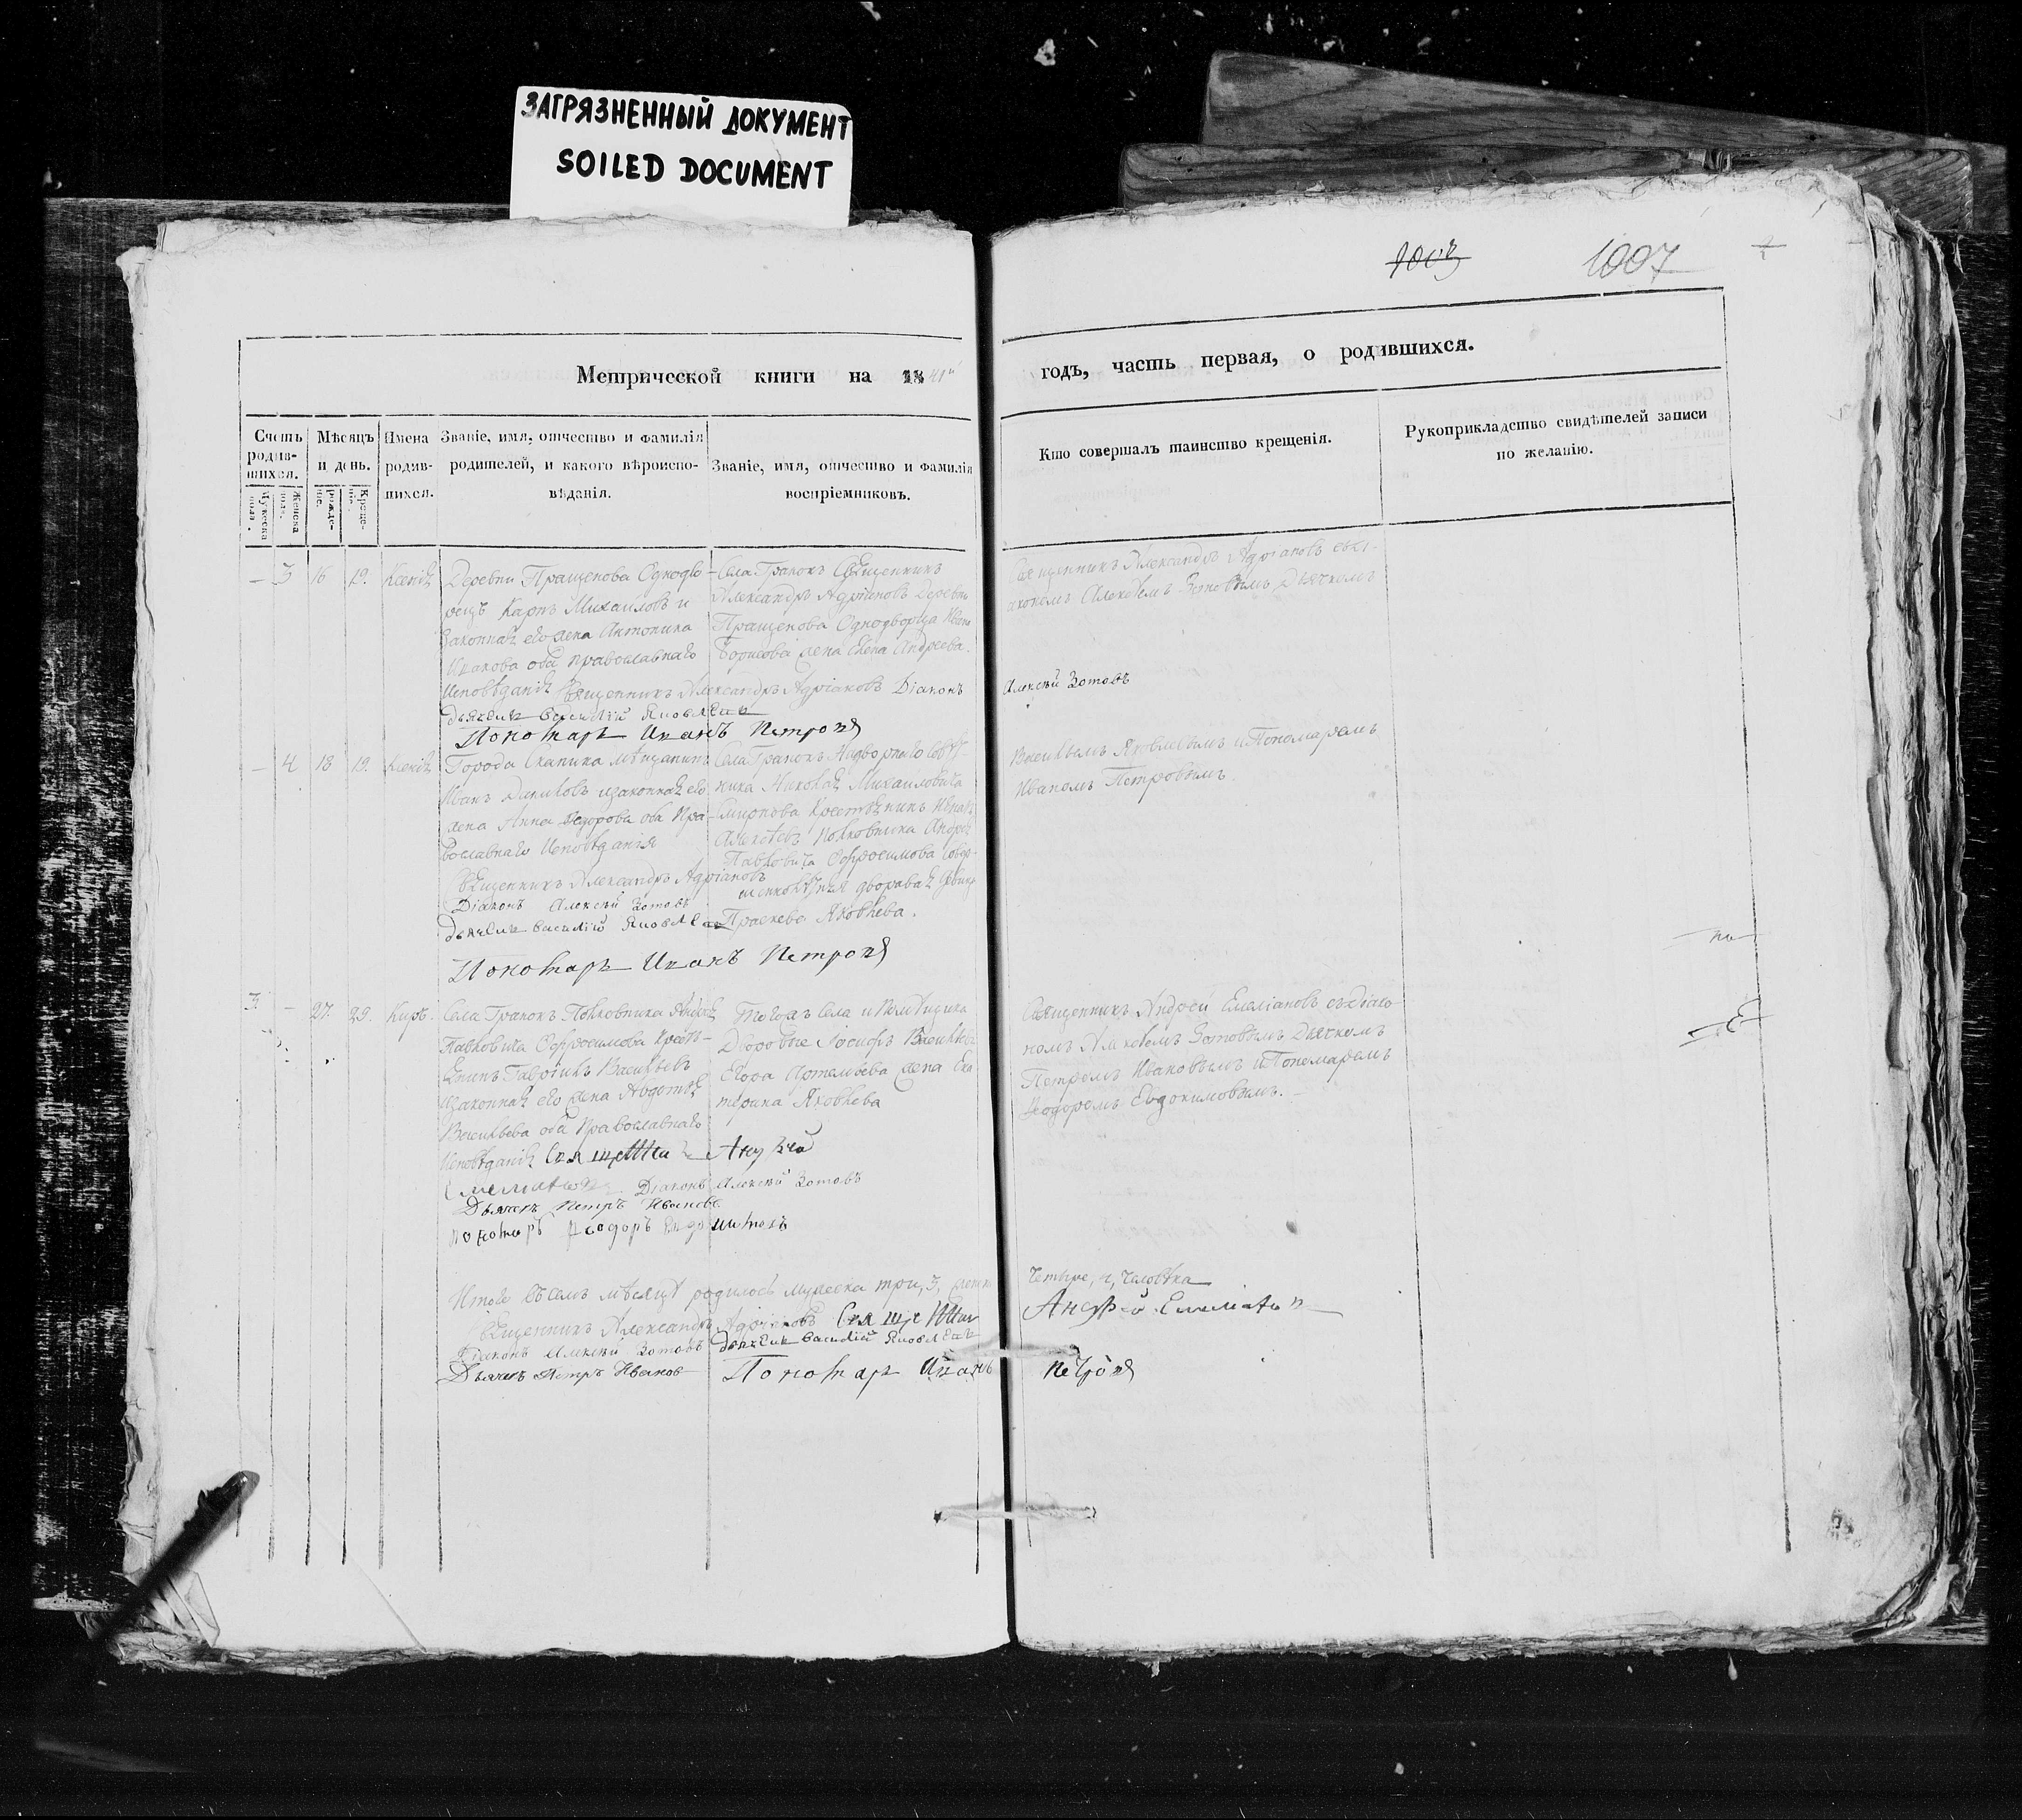 ЗАГРЯЗНЕННЫЙ ДОКУМЕНТ
SOILED DOCUMENT
1007
Метрической книги на 1841
годъ, часть первая, о родившихся.
Счетъ родив-шихся.
Мужеска пола.
Женска пола.
Мѣсяцъ и день.
рожде-нiе.
Креще-нiе.
Имена родив-шихся.
Званiе, имя, отчество и фамилiя
родителей, и какого вѣроиспо-
вѣданiя.
Званiе, имя, отчество и фамилiя
воспрiемниковъ.
Кто совершалъ таинство крещенiя.
Рукоприкладство свидѣтелей записи
по желанiю.
— 3 16 19. Ксенiя
Деревни Пращенова Однодво
рецъ Карпъ Михайловъ и
законная его жена Антонина
оба православнаго
Исповѣданiя Священникъ Александръ Адрiановъ Дiаконъ
Алексѣй Зотовъ
дьячекъ Василiй Яковлевъ
Пономарь Иванъ Петровъ
Села Гранокъ Священникъ
Александръ Адрiановъ Деревни
Пращенова Однодворца Ивана
Борисова жена Елена Андреева.
Священникъ Александръ Адрiановъ съ дi-
акономъ Алексѣемъ Зотовымъ Дьячкомъ
Васильемъ Яковлевымъ и Пономаремъ
Иваномъ Петровымъ.
— 4 18 19. Ксенiя
Города Скапина мѣщанинъ
Иванъ Даниловъ и законная его
жена Анна Федорова оба Пра-
вославнаго Исповѣданiя
Священникъ Александръ Адрiановъ
Дiаконъ Алексѣй Зотовъ
дьячекъ Василiй Яковлевъ
Пономарь Иванъ Петровъ
Села Гранокъ Надворнаго Совѣт-
ника Николая Михаиловича
Смирнова Крестьянинъ Иванъ
Алексѣевъ Полковника Андрея
Павловича Офросимова
дворовая девица
Праскева Яковлева.
3 — 27. 29. Киръ.
Села Гранокъ Полковника Андрея
Павловича Офросимова Кресть-
янинъ Гаврiилъ Васильевъ
и законная его жена Авдотiя
Васильева оба Православнаго
Исповѣданiя Священникъ Андрей
Емелiановъ Дiаконъ Алексѣй Зотовъ
Дьячекъ Петръ Ивановъ
пономарь Феодоръ Евдокимовъ
Тогожъ села и Помѣщика
Дворовые Iосифъ Васильевъ
Егора Артемьева жена Ека
терина Яковлева
Священникъ Андрей Емелiановъ съ Дiако
номъ Алексѣемъ Зотовымъ Дьячкомъ
Петромъ Ивановымъ и Пономаремъ
Феодоромъ Евдокимовымъ.
Итого въ семъ мѣсяцѣ родилось мужеска три, 3, женска
четыре, 4, человѣка
Священникъ Александръ Адрiановъ Священникъ
Андрей Емелiановъ
Дiаконъ Алексѣй Зотовъ дьячекъ Василiй Яковлевъ
Дьячекъ Петръ Ивановъ Пономарь Иванъ
Петровъ